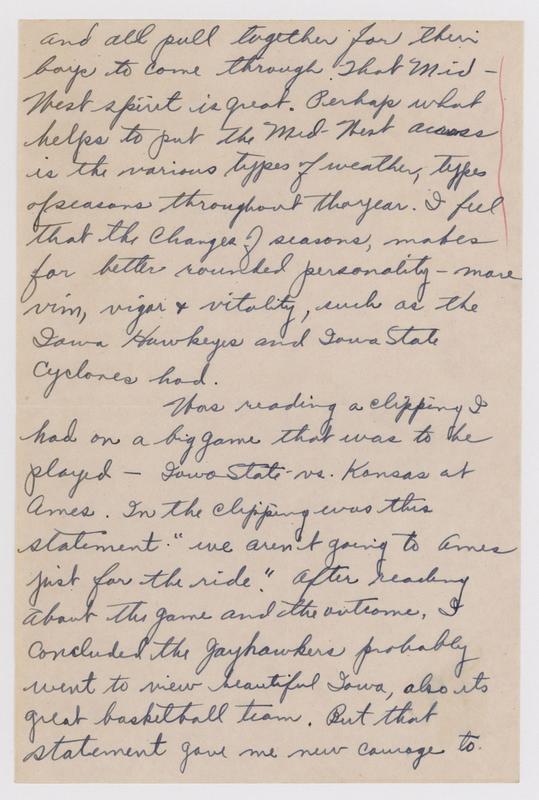 and all pull together for their
boys to come through. That Mid-
West spirit is great. Perhap what
helps to put the Mid-West across
is the various types of weather, types
of seasons throughout the year. I feel
that the changes of seasons, makes
for better rounded personality - more
vim, vigor & vitality, such as the
Iowa Hawkeyes and Iowa State
Cyclones had.
Was reading a clipping I
had on a big game that was to be
played - Iowa State vs. Kansas at
Ames. In the clipping was this
statement "we aren't going to Ames
just for the ride." After reading
about the game and the outcome, I
concluded the Jayhawkers probably
went to view beautiful Iowa, also its
great basketball team. But that
statement gave me new courage to